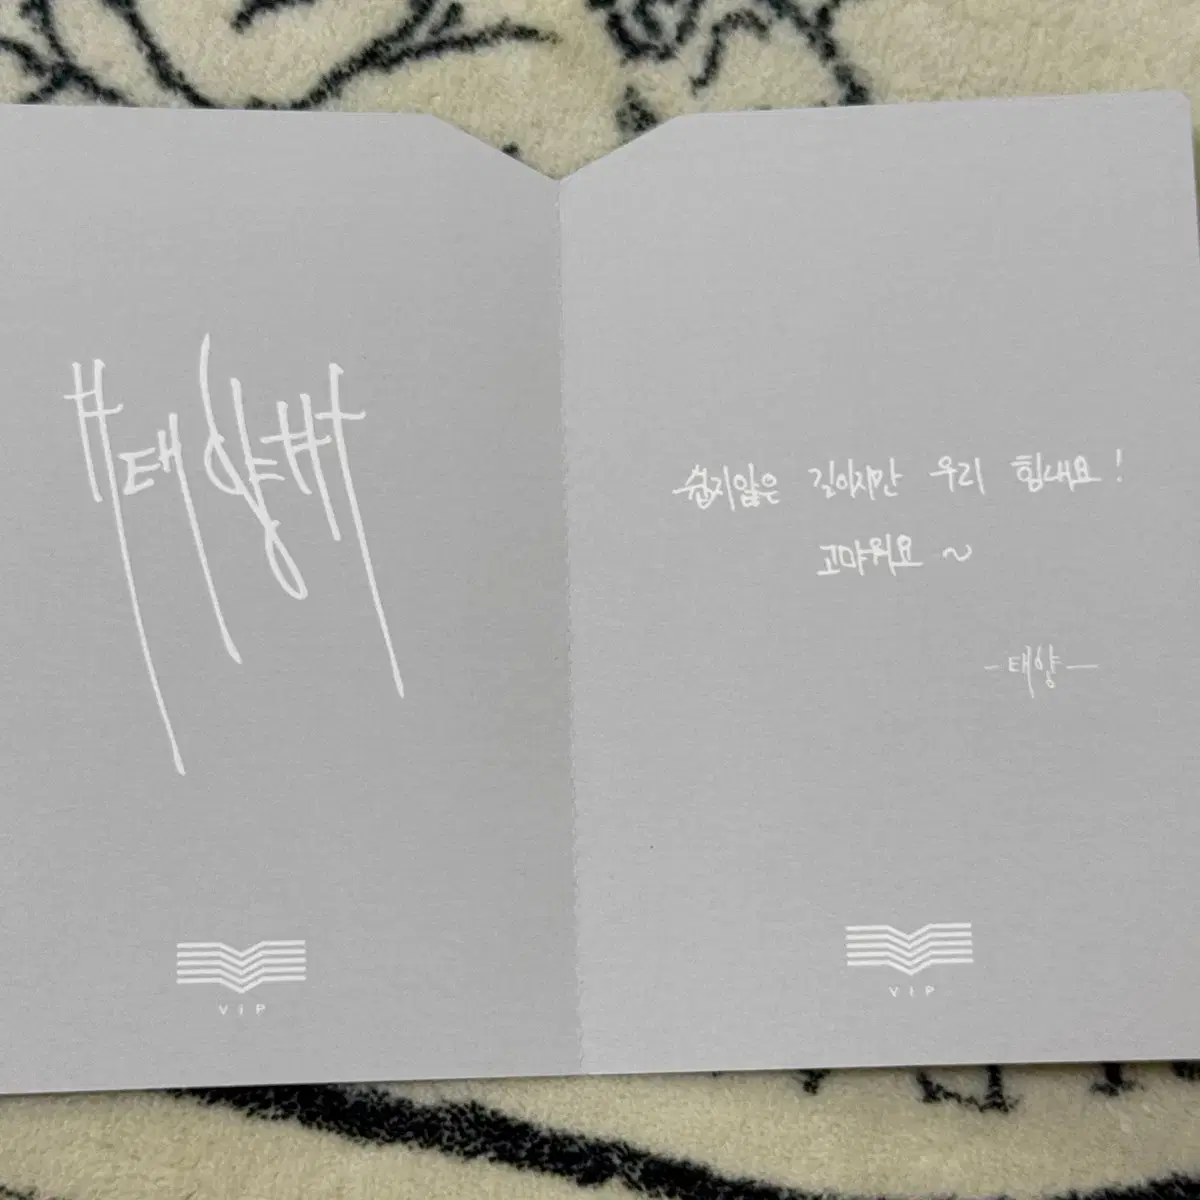 태양
VIP
쉽지않은 길이지만 우리 힘내요!
고마워요 ~
-태양-
VIP